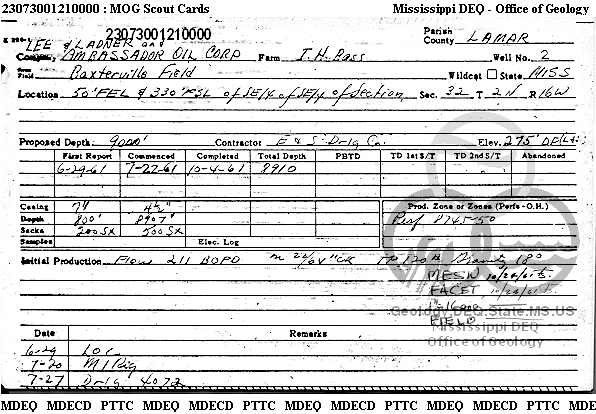 23073001210000 : MOG Scout Cards Mississippi DEQ - Office of Geology
23073001210000
Parish
County LAMAR
LEE & LADNER
Company AMBASSADOR OIL CORP Farm I.H. Bass Well No. 2
Field Baxterville Field Wildcat State MISS
Location 50' FEL & 330' FSL of SE/4 of SE/4 of Section Sec. 32 T 2N R 16W
Proposed Depth 9000' Contractor E & S. Drlg Co. Elev. 275' DF
First Report Commenced Completed Total Depth PBTD TD 1st S/T TD 2nd S/T Abandoned
6-29-61 7-22-61 10-4-61 8910
Casing 7⅝ 4½" Prod. Zone or Zones (Perfs-O.H.)
Depth 800' 8907' Perf 8745-50
Sacks 200 SX 500 SX
Samples Elec. Log
Initial Production Flow 211 BOPD 22/64" CK TP 120# Gravity 18°
MESW 10/26/61
FACET 10/26/61
FIELD
Geology.DEQ.State.MS.US
Mississippi DEQ
Office of Geology
Date Remarks
6-29 LOC
7-20 MI Rig
7-27 Drlg 4072
MDEQ MDECD PTTC MDEQ MDECD PTTC MDEQ MDECD PTTC MDEQ MDECD PTTC MDEQ